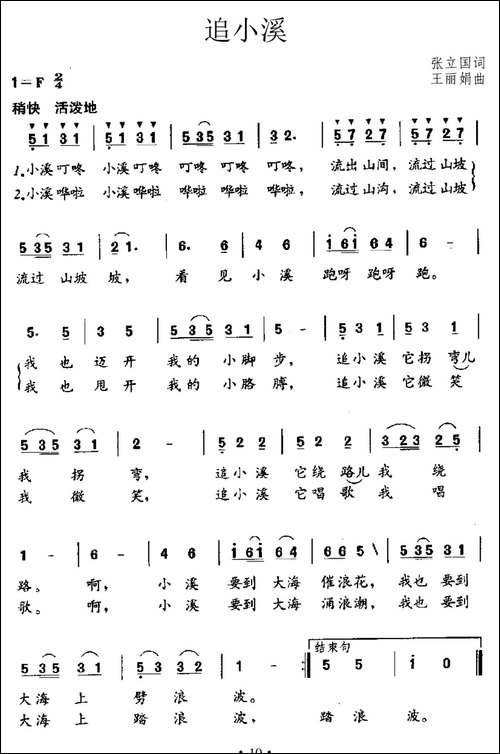 追小溪
张立国词
1=F 2/4
王丽娟曲
稍快 活泼地
5 1 3 1 5 1 3 1 5 3 5 3 1 3 2. 5 7 2 7 5 7 2 7
1.小溪叮咚 小溪叮咚 叮咚 叮咚, 流出山间, 流过山坡
2.小溪哗啦 小溪哗啦 哗啦 哗啦, 流过山沟, 流过山坡
5 3 5 3 1 2 1. 6. 6 4 6 1 6 1 6 4 6.
流过 山坡 坡, 看 见 小 溪 跑呀 跑呀 跑。
5. 5 3 5 5 3 5 3 1 2 - 5 3 5 5 3 1
我 也 迈 开 我 的 小 脚 步, 追 小 溪 它 拐 弯儿
我 也 甩 开 我 的 小 胳 膊, 追 小 溪 它 微 笑
5 3 5 3 1 2 - 5 2 2 5 2 2 3 2 3 2 5
我 拐 弯, 追 小 溪 它 绕 路儿 我 绕
我 微 笑, 追 小 溪 它 唱 歌 我 唱
1 - 6 - 4 6 1 6 1 6 1 6 6 5 \ 5 3 5 3 1
路。 啊, 小 溪 要到 大海 催浪花, 我也 要到
歌。 啊, 小 溪 要到 大海 涌浪潮, 我也 要到
结束句
5 3 5 3 1 5 3 3 2 1 - 5 5 1 0
大海 上 劈 浪 波。
大海 上 踏 浪 波, 踏 浪 波。
· 10 ·